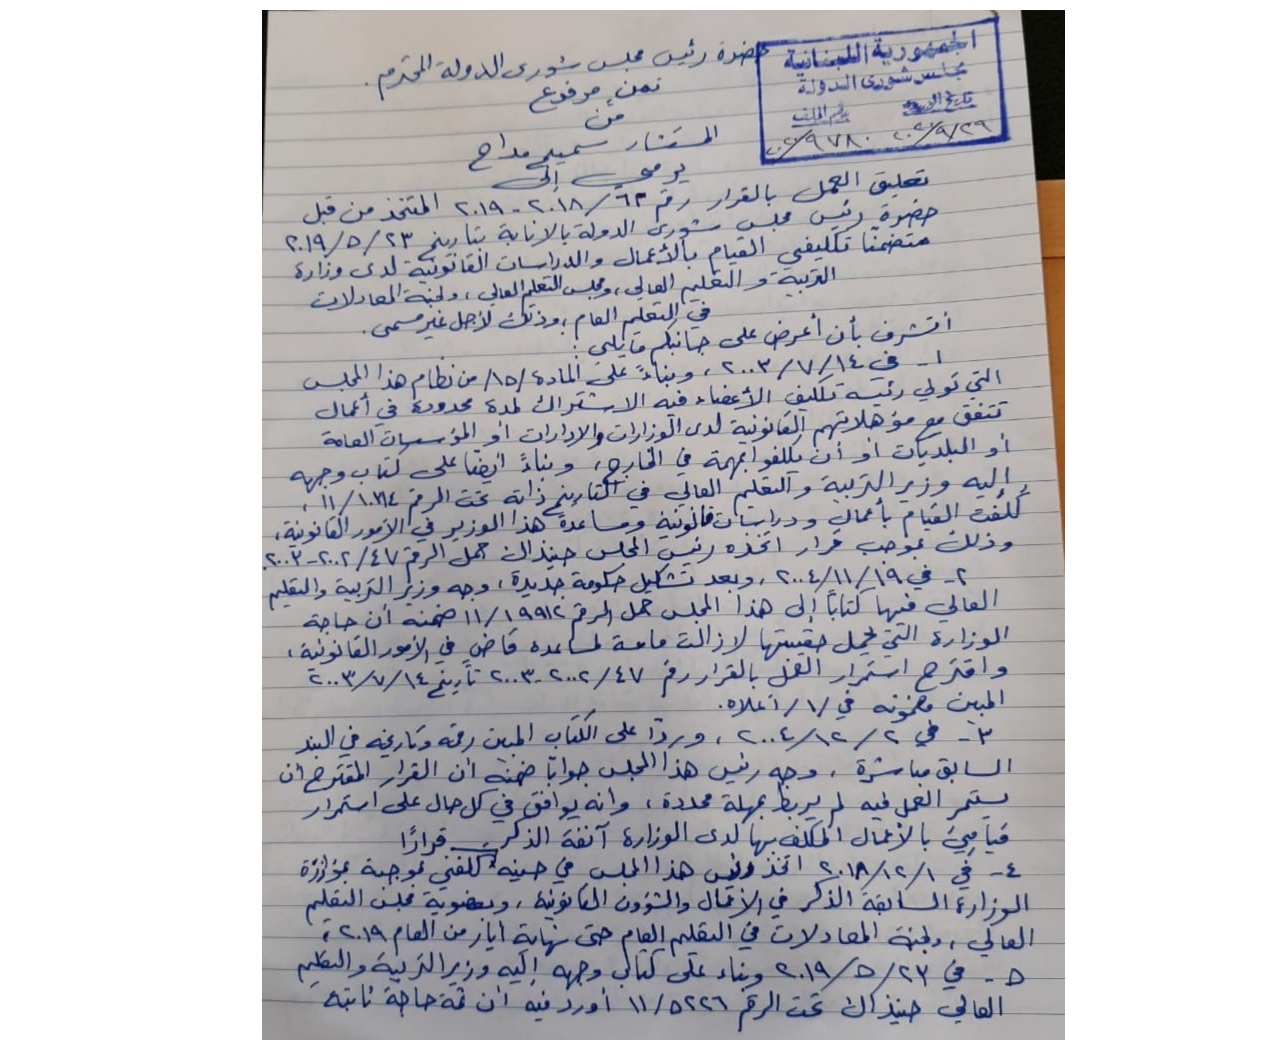 الجمهورية اللبنانية
مجلس شورى الدولة
تاريخ الورود رقم الملف
حضرة رئيس مجلس شورى الدولة المحترم.
نص مرفوع
من
المستشار سميح مداح
يرمي إلى
تعليق العمل بالقرار رقم ٦٣/٢٠١٨-٢٠١٩ المتخذ من قبل
حضرة رئيس مجلس شورى الدولة بالانابة بتاريخ ٢٣/٥/٢٠١٩
متضمنًا تكليفي القيام بالأعمال والدراسات القانونية لدى وزارة
التربية والتعليم العالي، ومجلس التعليم العالي، ولجنة المعادلات
في التعليم العام، وذلك لأجل غير مسمى.
أتشرف بأن أعرض على جانبكم ما يلي:
١- في ١٤/٧/٢٠٠٣، وبناءً على المادة /١٥/ من نظام هذا المجلس
التي تولي رئيسه تكليف الأعضاء فيه الاشتراك لمدة محدودة في أعمال
تتفق مع مؤهلاتهم القانونية لدى الوزارات والإدارات أو المؤسسات العامة
أو البلديات أو أن يكلفوا بمهمة في الخارج، وبناءً أيضًا على كتاب وجهه
إليه وزير التربية والتعليم العالي في التاريخ ذاته تحت الرقم
كُلّفت القيام بأعمال ودراسات قانونية ومساعدة هذا الوزير في الأمور القانونية،
وذلك بموجب قرار اتخذه رئيس المجلس حينذاك حمل الرقم ٤٧/٢٠٠٢-٢٠٠٣.
٢- في ١٩/١١/٢٠٠٤، وبعد تشكيل حكومة جديدة، وجه وزير التربية والتعليم
العالي فيها كتابًا إلى هذا المجلس حمل الرقم ١١/١٩٩١٢ ضمنه أن حاجة
الوزارة التي يحمل حقيبتها لا زالت ماسة لمساعدة قاضٍ في الأمور القانونية،
واقترح استمرار العمل بالقرار رقم ٤٧/٢٠٠٢-٢٠٠٣ تاريخ ١٤/٧/٢٠٠٣
المبين مضمونه في /١/ أعلاه.
٣- في ٢/١٢/٢٠٠٤، وردًا على الكتاب المبين رقمه وتاريخه في البند
السابق مباشرة، وجه رئيس هذا المجلس جوابًا ضمنه أن القرار المقترح أن
يستمر العمل فيه لم يربط بمهلة محددة، وأنه يوافق في كل حال على استمرار
قيامي بالأعمال المكلف بها لدى الوزارة آنفة الذكر.
٤- في ١/١٢/٢٠١٨ اتخذ رئيس هذا المجلس في حينه قرارًا كلفني بموجبه بمؤازرة
الوزارة السابقة الذكر في الأعمال والشؤون القانونية، وبعضوية مجلس التعليم
العالي، ولجنة المعادلات في التعليم العام حتى نهاية أيار من العام ٢٠١٩،
٥- في ٢٣/٥/٢٠١٩ وبناء على كتاب وجهه إليه وزير التربية والتعليم
العالي حينذاك تحت الرقم ١١/٥٢٢٦ أورد فيه أن ثمة حاجة ثابتة